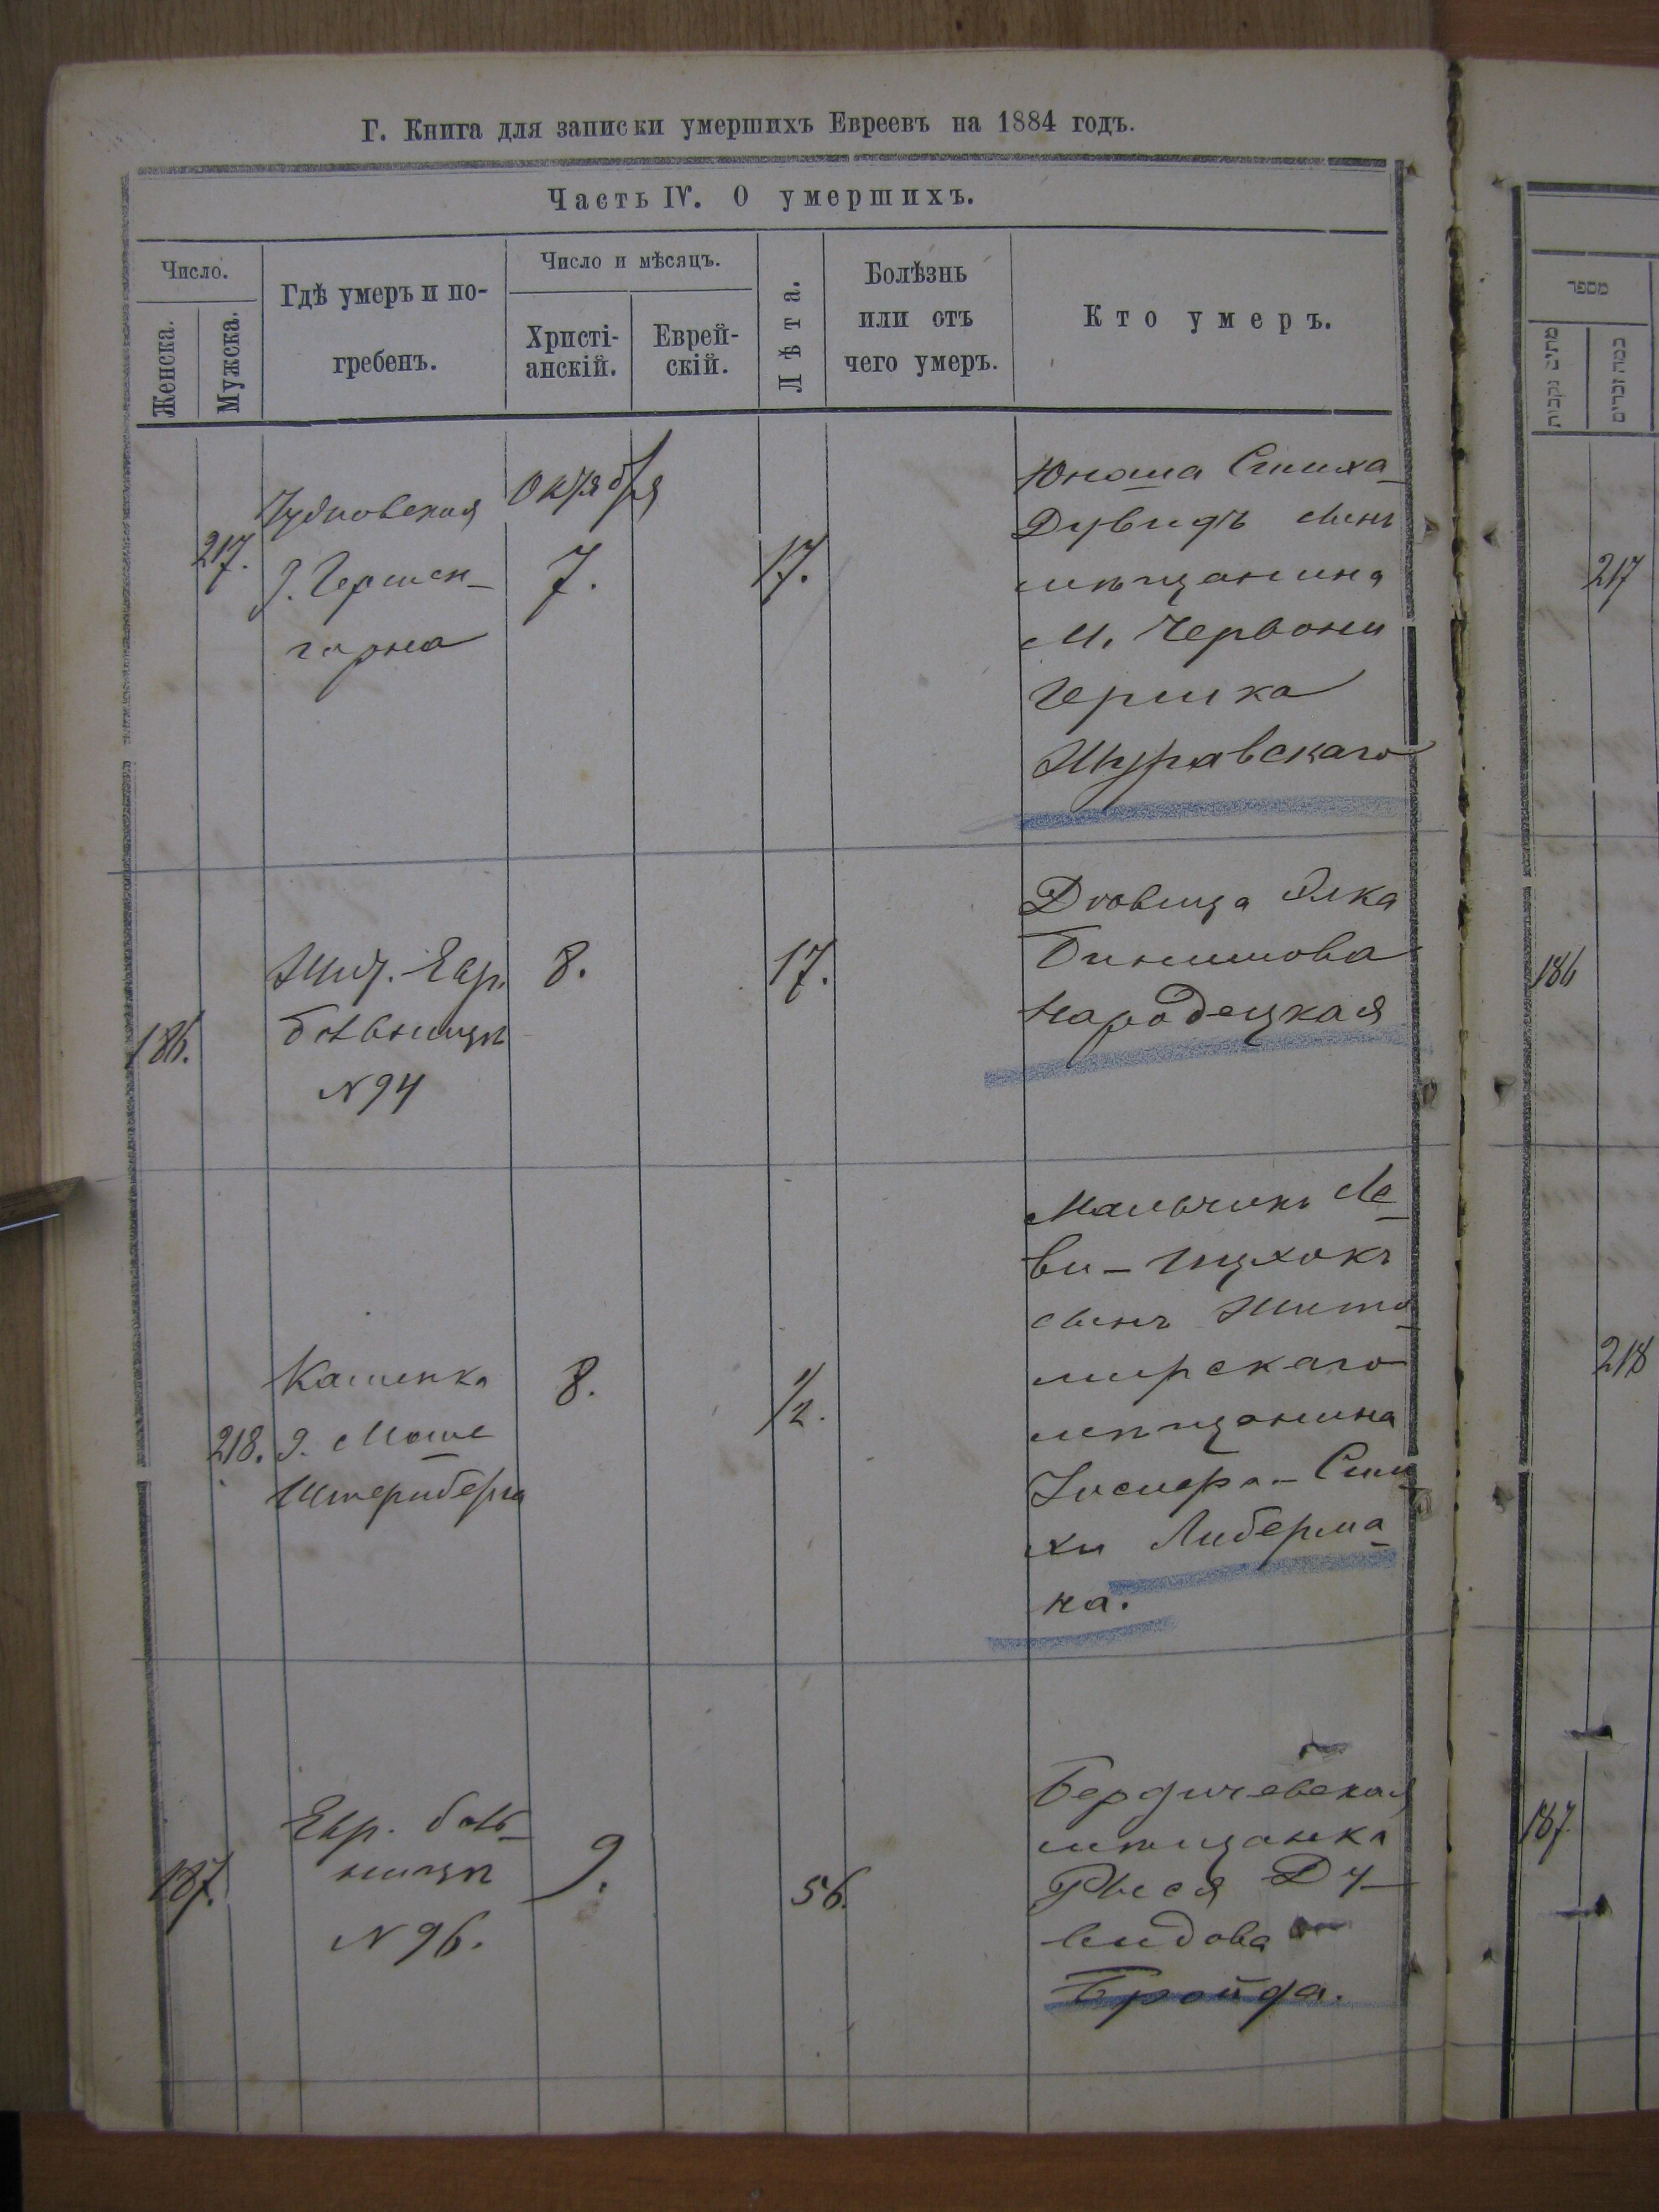 Г. Книга для записки умершихъ Евреевъ на 1884 годъ.
Часть IV. О умершихъ.
Число.
Женска.
Мужска.
Гдѣ умеръ и по-
гребенъ.
Число и мѣсяцъ.
Христі-
анскій.
Еврей-
скій.
Лѣта.
Болѣзнь
или отъ
чего умеръ.
Кто умеръ.
217.
Чудновская
д. Гершен-
горна
Октября
7.
17.
Юноша Симха-
Дувидъ сынъ
мѣщанина
м. Червони
Гершка
Журавскаго
186.
Жит. Евр.
больницѣ
N 94
8.
17.
Дѣвица Элка
Бинишова
Народецкая
218.
Кашенка
д. Моше
Штернберга
8.
1/2.
Мальчикъ Ле-
ви-Ицхокъ
сынъ Жито-
мирскаго
мѣщанина
Иосифа-Сим
хи Либерма-
на.
187.
Евр. боль-
ницѣ
N 96.
9.
56.
Бердичевская
мѣщанка
Рыся Ду-
видова
Бройда.
מספר
מתים נקבות
כמה זכרים
217
186
218
187.